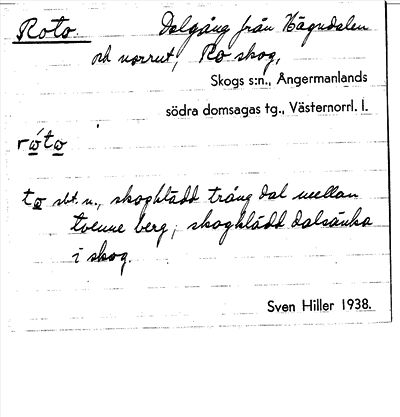 Roto. Dalgång från Hägndalen
och norrut, Ro skog,
Skogs s:n., Ångermanlands
södra domsagas tg., Västernorrl. l.
to sbt. n., skogklädd trång dal mellan
tvenne berg; skogklädd dalsänka
i skog.
Sven Hiller 1938.